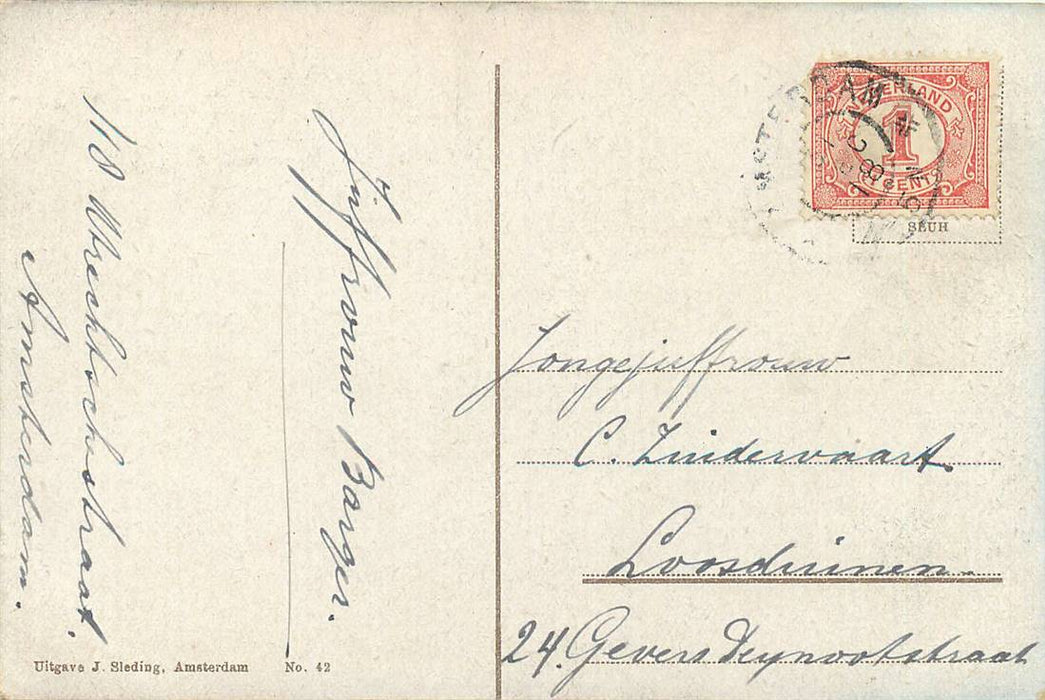 Juffrouw Barger.
118 Utrechtschestraat.
Amsterdam.
Uitgave J. Sleding, Amsterdam No. 42
AMSTERDAM
NEDERLAND
1
CENT
SEUH
Jongejuffrouw
C. Zuidervaart.
Loosduinen.
24. Gevers Deynootstraat